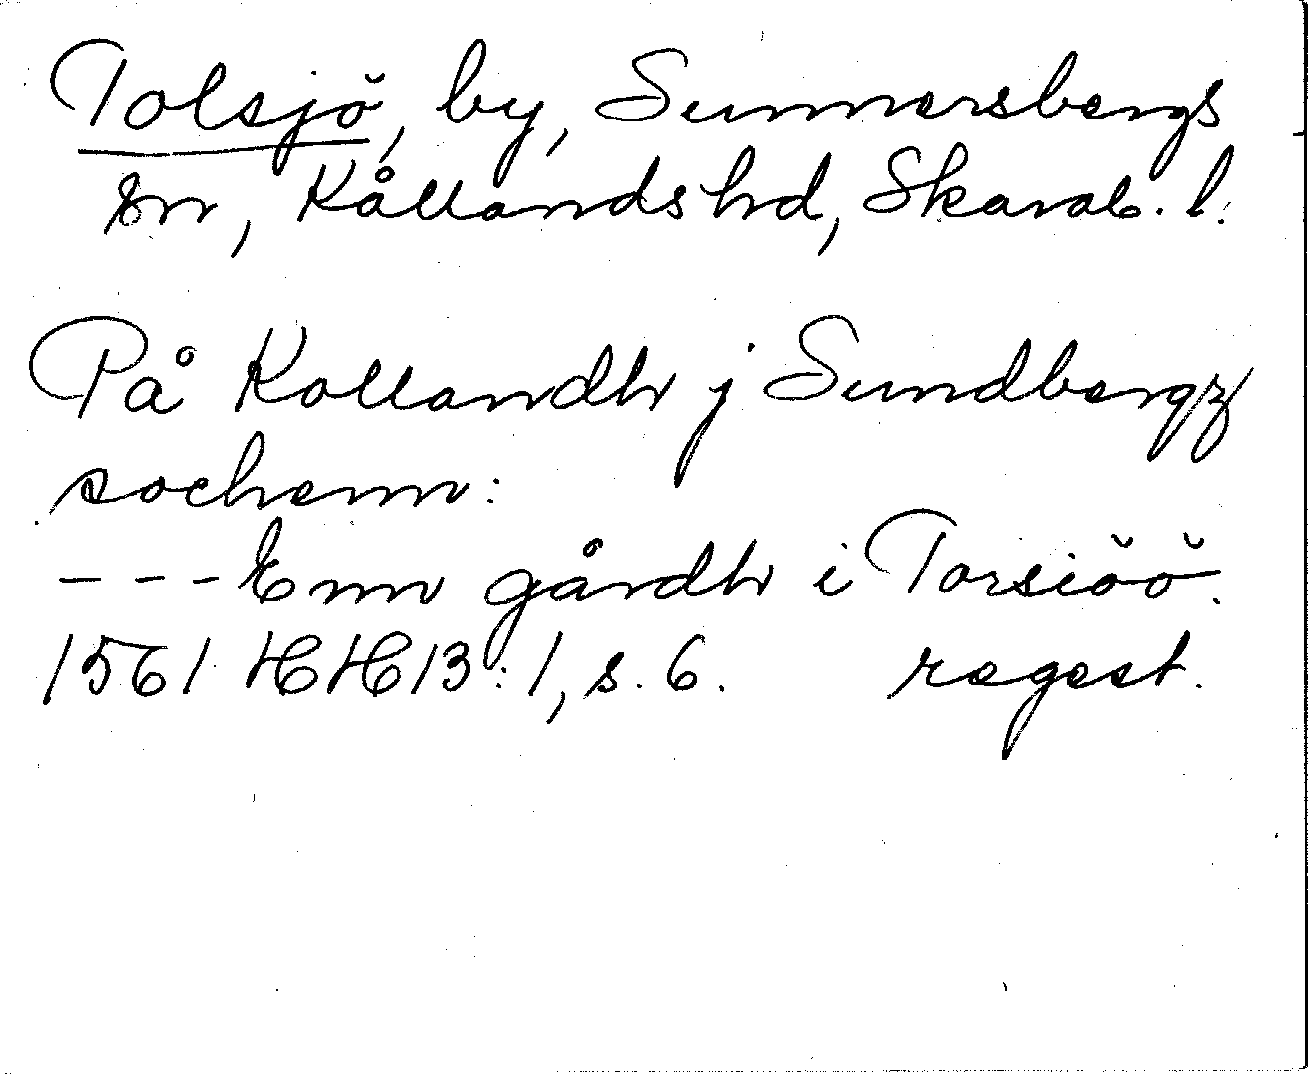 Tolsjö, by, Sunnersbergs
sn, Kållands hd, Skarab. l.
På Kollandh j Sundbergz
sochenn:
--- Enn gårdh i Torsiöö.
1561 HH 13:1, s. 6. regest.